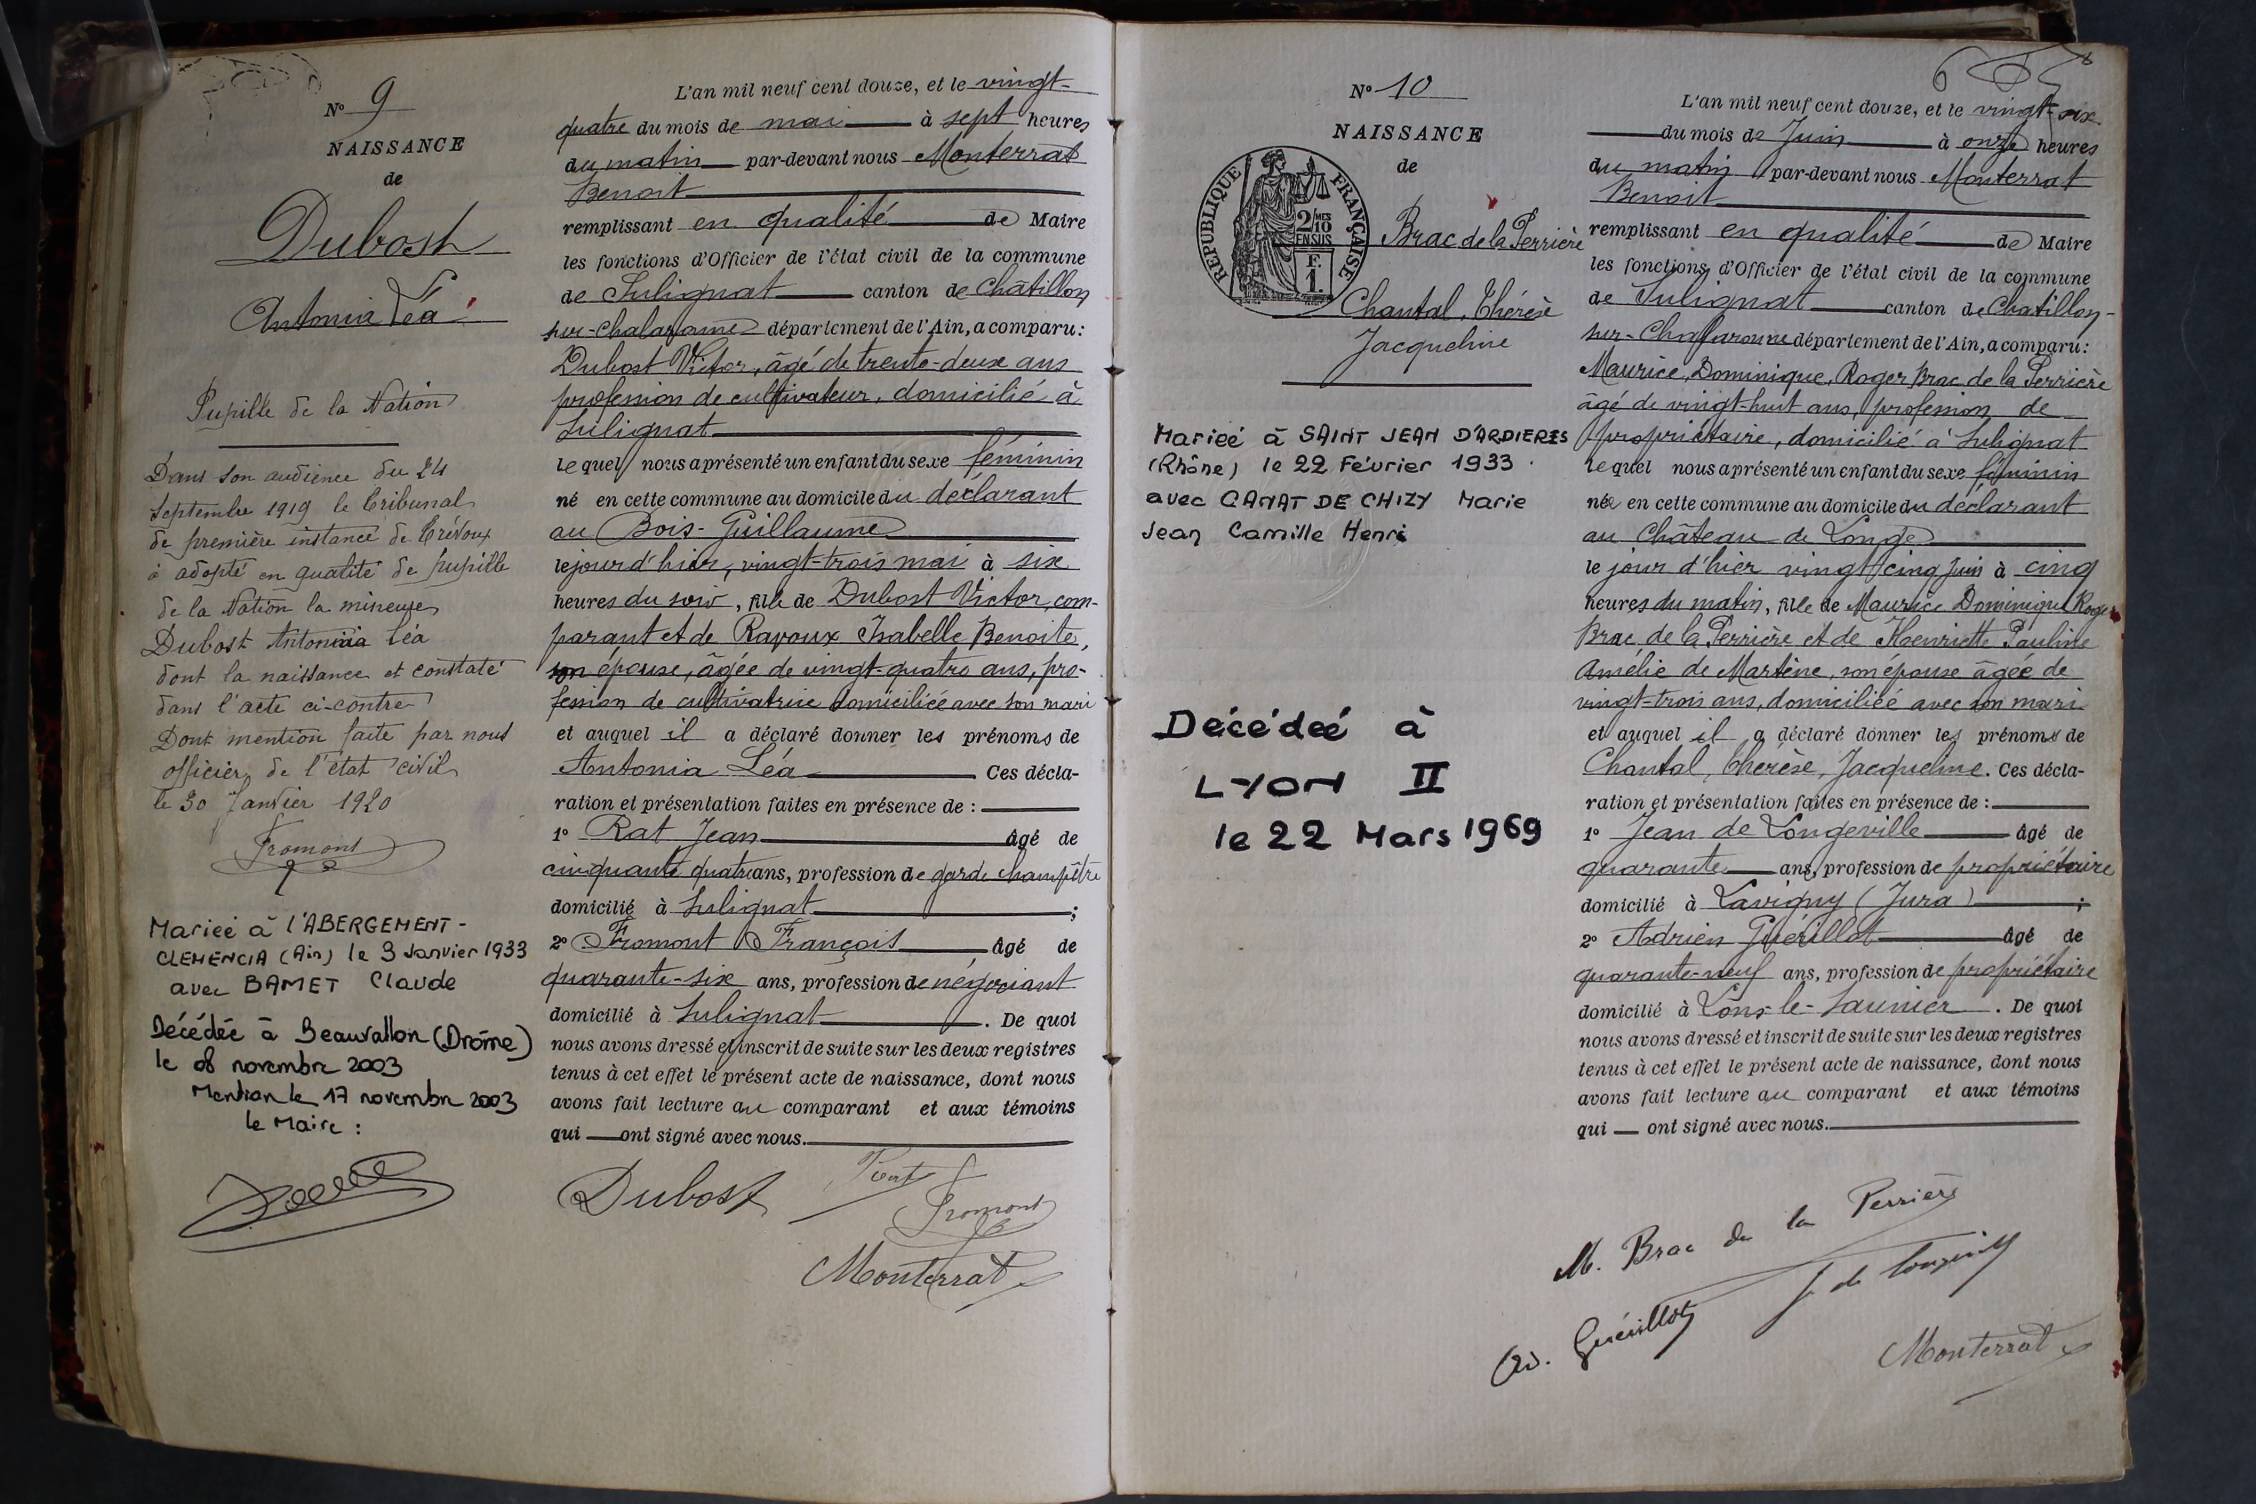 N° 9
NAISSANCE
de
Dubost
Antonia Léa
Pupille de la Nation
Dans son audience du 24
Septembre 1919 le Tribunal
de première instance de Trévoux
a adopté en qualité de pupille
de la Nation la mineure
Dubost Antonia Léa
dont la naissance et constaté
dans l'acte ci-contre
Dont mention faite par nous
officier de l'état civil
le 30 Janvier 1920
Fromont
Mariée à l'ABERGEMENT-
CLEMENCIA (Ain) le 3 Janvier 1933
avec BAMET Claude
Décédée à Beauvallon (Drôme)
le 08 novembre 2003
Mention le 17 novembre 2003
le Maire :
L'an mil neuf cent douze, et le vingt-
quatre du mois de mai à sept heures
du matin par-devant nous Monterrat
Benoit
remplissant en qualité de Maire
les fonctions d'Officier de l'état civil de la commune
de Sulignat canton de Châtillon
sur-Chalaronne département de l'Ain, a comparu :
Dubost Victor, âgé de trente-deux ans
profession de cultivateur, domicilié à
Sulignat
lequel nous a présenté un enfant du sexe féminin
né en cette commune au domicile du déclarant
au Bois-Guillaume
le jour d'hier, vingt-trois mai à six
heures du soir, fille de Dubost Victor, com-
parant et de Ravoux Isabelle Benoite,
son épouse, âgée de vingt-quatre ans, pro-
fession de cultivatrice domiciliée avec son mari
et auquel il a déclaré donner les prénoms de
Antonia Léa Ces décla-
ration et présentation faites en présence de :
1° Rat Jean âgé de
cinquante quatre ans, profession de garde champêtre
domicilié à Sulignat ;
2° Fromont François âgé de
quarante-six ans, profession de négociant
domicilié à Sulignat . De quoi
nous avons dressé et inscrit de suite sur les deux registres
tenus à cet effet le présent acte de naissance, dont nous
avons fait lecture au comparant et aux témoins
qui ont signé avec nous.
Dubost
Fromont
Monterrat
N° 10
NAISSANCE
de
RÉPUBLIQUE FRANÇAISE
2/10 MES
EN SUS
F.
1.
Brac de la Perrière
Chantal, Thérèse
Jacqueline
Mariée à SAINT JEAN D'ARDIERES
(Rhône) le 22 Février 1933
avec CANAT DE CHIZY Marie
Jean Camille Henri
Décédée à
LYON II
le 22 Mars 1969
6
L'an mil neuf cent douze, et le vingt-six
du mois de Juin à onze heures
du matin par-devant nous Monterrat
Benoit
remplissant en qualité de Maire
les fonctions d'Officier de l'état civil de la commune
de Sulignat canton de Chatillon-
sur-Chalaronne département de l'Ain, a comparu :
Maurice, Dominique, Roger Brac de la Perrière
âgé de vingt-huit ans, profession de
propriétaire, domicilié à Sulignat
lequel nous a présenté un enfant du sexe féminin
née en cette commune au domicile du déclarant
au Château de Longe
le jour d'hier vingt cinq Juin à cinq
heures du matin, fille de Maurice Dominique Roger
Brac de la Perrière et de Henriette Pauline
Amélie de Martène, son épouse âgée de
vingt-trois ans, domiciliée avec son mari
et auquel il a déclaré donner les prénoms de
Chantal, Thérèse, Jacqueline. Ces décla-
ration et présentation faites en présence de :
1° Jean de Longeville âgé de
quarante ans, profession de propriétaire
domicilié à Lavigny (Jura) ;
2° Adrien Guérillot âgé de
quarante-neuf ans, profession de propriétaire
domicilié à Lons-le-Saunier . De quoi
nous avons dressé et inscrit de suite sur les deux registres
tenus à cet effet le présent acte de naissance, dont nous
avons fait lecture au comparant et aux témoins
qui ont signé avec nous.
M. Brac de la Perrière
J. de Longeville
Ad. Guérillot
Monterrat